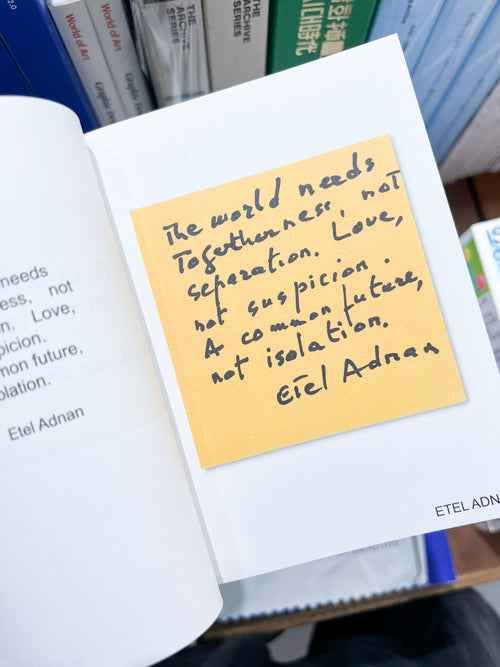 2.0
World of Art
World of Art
Graphic De
THE ARCHIVE SERIES
THE ARCHIVE SERIES
needs
ess, not
n. Love,
picion.
mon future,
olation.
Etel Adnan
The world needs
Togetherness, not
separation. Love,
not suspicion.
A common future,
not isolation.
Etel Adnan
ETEL ADN